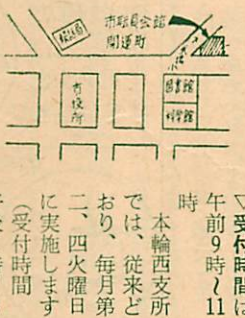 市職員会館
開運町
市役所
図書館
科学館
▽受付時間は
午前9時〜11
時
本輪西支所
では、従来ど
おり、毎月第
二、四火曜日
に実施します
(受付時間